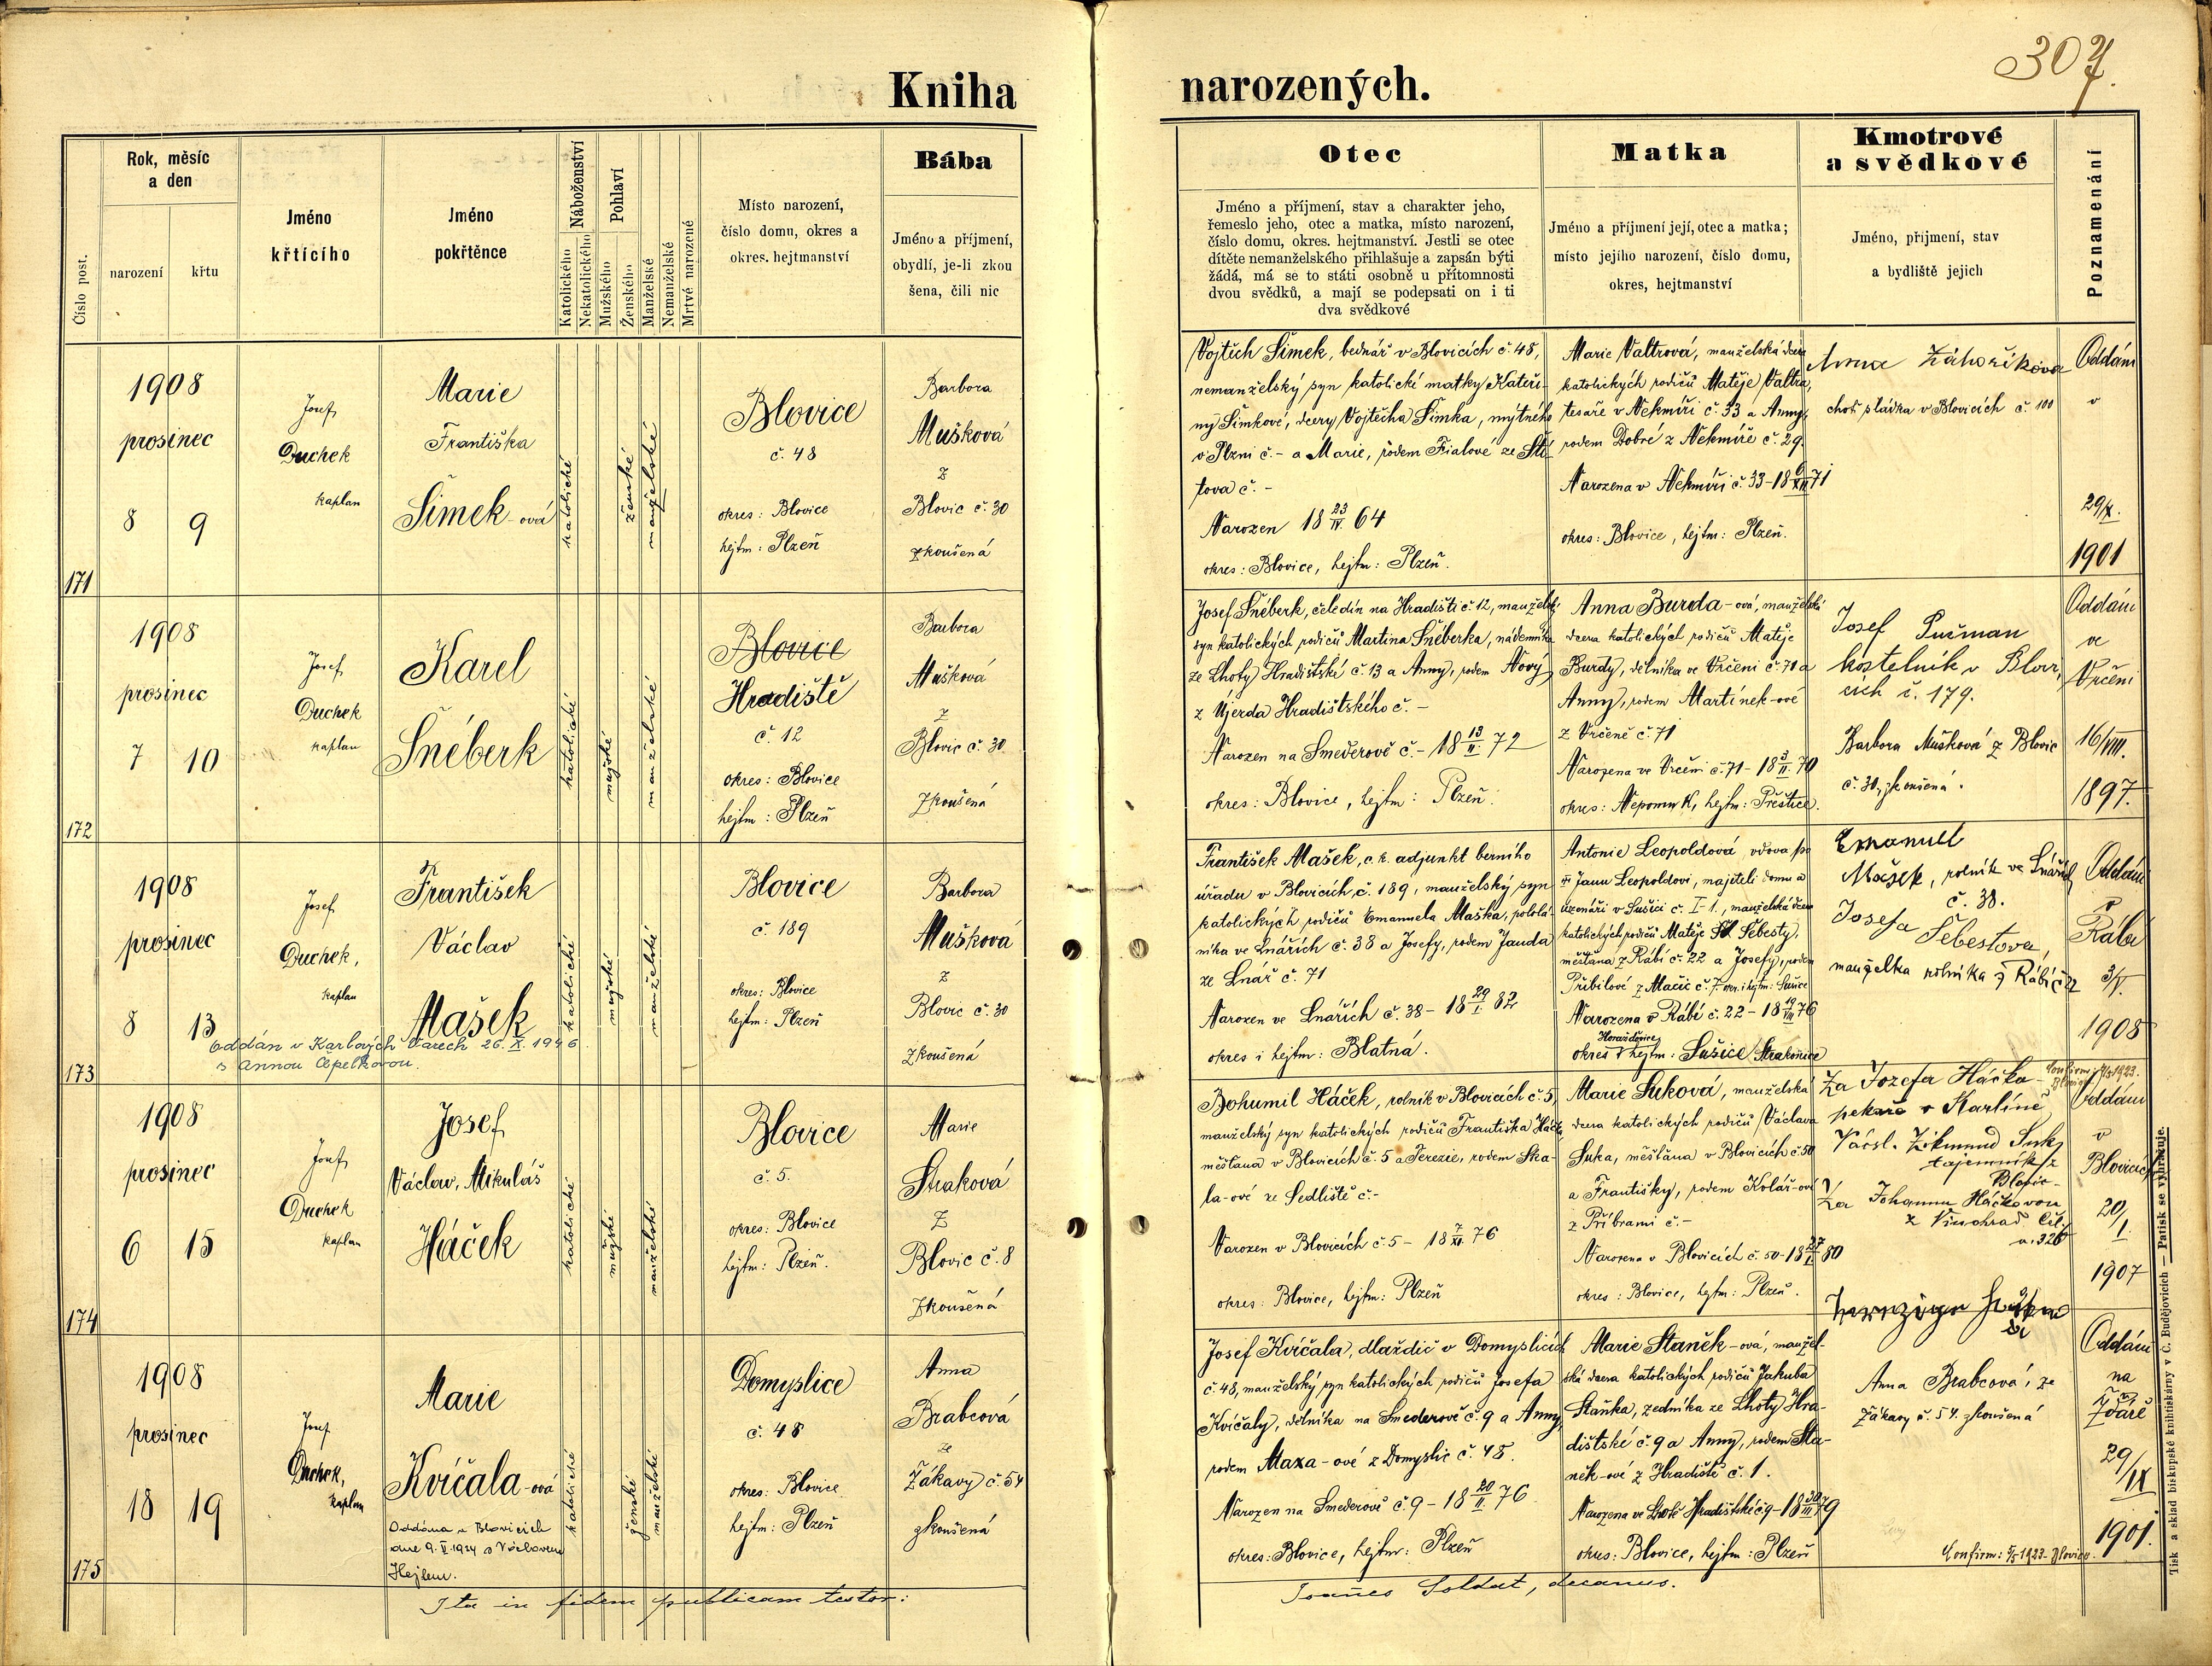 307.
Kniha narozených.
Číslo post.
Rok, měsíc
a den
narození
křtu
Jméno
křtícího
Jméno
pokřtěnce
Náboženství
Katolického
Nekatolického
Pohlaví
Mužského
Ženského
Manželské
Nemanželské
Mrtvě narozené
Místo narození,
číslo domu, okres a
okres. hejtmanství
Bába
Jméno a příjmení,
obydlí, je-li zkou
šena, čili nic
Otec
Jméno a příjmení, stav a charakter jeho,
řemeslo jeho, otec a matka, místo narození,
číslo domu, okres. hejtmanství. Jestli se otec
dítěte nemanželského přihlašuje a zapsán býti
žádá, má se to státi osobně u přítomnosti
dvou svědků, a mají se podepsati on i ti
dva svědkové
Matka
Jméno a příjmení její, otec a matka;
místo jejího narození, číslo domu,
okres, hejtmanství
Kmotrové
a svědkové
Jméno, příjmení, stav
a bydliště jejich
Poznamenání
171
1908
prosinec
8 9
Josef
Duchek
kaplan
Marie
Františka
Šimek-ová
katolické
ženské
manželské
Blovice
č. 48
okres: Blovice
hejtm: Plzeň
Barbora
Mušková
z
Blovic č. 30
zkoušená
Vojtěch Šimek, bednář v Blovicích č. 48,
nemanželský syn katolické matky Kateři-
ny Šimkové, dcery Vojtěcha Šimka, mýtného
v Plzni č. - a Marie, rodem Fialové ze Ště-
tova č. -
Narozen 18 23/IV. 64
okres: Blovice, hejtm: Plzeň.
Marie Valtrová, manželská dcera
katolických rodičů Matěje Valtra,
tesaře v Nekmíři č. 33 a Anny,
rodem Dobré z Nekmíře č. 29
Narozena v Nekmíři č. 33 - 18 71
okres: Blovice, hejtm: Plzeň.
Anna Záhoříková
choť sládka v Blovicích č. 100
Oddáni
v
29/X.
1901
172
1908
prosinec
7 10
Josef
Duchek
kaplan
Karel
Šnéberk
katolické
mužské
manželské
Blovice
Hradiště
č. 12
okres: Blovice
hejtm: Plzeň
Barbora
Mušková
z
Blovic č. 30
Zkoušená
Josef Šnéberk, čeledín na Hradišti č. 12, manželský
syn katolických rodičů Martina Šnéberka, nádenníka
ze Lhoty Hradištské č. 13 a Anny, rodem Nový
z Újezda Hradištského č. -
Narozen na Smederově č. - 18 13/II. 72
okres: Blovice, hejtm: Plzeň.
Anna Burda-ová, manželská
dcera katolických rodičů Matěje
Burdy, dělníka ve Vrčeni č. 71 a
Anny, rodem Martínek-ové
z Vrčeně č. 71
Narozena ve Vrčeni č. 71 - 18 3/II. 70
okres: Nepomuk, hejtm: Přeštice.
Josef Pučman
kostelník v Blovi-
cích č. 179.
Barbora Mušková z Blovic
č. 30, zkoušená.
Oddáni
ve
Vrčeni
16/VIII.
1897.
173
1908
prosinec
8 13
Josef
Duchek,
kaplan
František
Václav
Mašek
Oddán v Karlových Varech 26. X. 1946
s Annou Čepelkovou.
katolické
mužské
manželské
Blovice
č. 189
okres: Blovice
hejtm: Plzeň
Barbora
Mušková
z
Blovic č. 30
zkoušená
František Mašek, c. k. adjunkt berního
úřadu v Blovicích č. 189, manželský syn
katolických rodičů Emanuela Maška, pololá-
níka ve Lnářích č. 38 a Josefy, rodem Janda
ze Lnář č. 71
Narozen ve Lnářích č. 38 - 18 29/I. 82
okres i hejtm: Blatná.
Antonie Leopoldová, vdova po
Janu Leopoldovi, majiteli domu a
uzenáři v Sušici č. I-1., manželská dcera
katolických rodičů Matěje Šebesty,
měšťana z Rábí č. 22 a Josefy, rodem
Přibilové z Mačic č. 7 okr. i hejtm: Sušice
Narozena v Rábí č. 22 - 18 19/VIII 76
Horažďovice
okres i hejtm: Sušice Strakonice
Emanuel
Mašek, rolník ve Lnářích
č. 38.
Josefa
Šebestová,
manželka rolníka z Rábí č. 22
Oddáni
v
Rábí
3/V.
1908
174
1908
prosinec
6 15
Josef
Duchek
kaplan
Josef
Václav, Mikuláš
Háček
katolické
mužské
manželské
Blovice
č. 5.
okres: Blovice
hejtm: Plzeň.
Marie
Straková
Z
Blovic č. 8
Zkoušená
Bohumil Háček, rolník v Blovicích č. 5,
manželský syn katolických rodičů Františka Háčka,
měšťana v Blovicích č. 5 a Terezie, rodem Ska-
la-ové ze Sedliště č. -
Narozen v Blovicích č. 5 - 18 7/XI. 76
okres: Blovice, hejtm: Plzeň
Marie Suková, manželská
dcera katolických rodičů Václava
Suka, měšťana v Blovicích č. 50
a Františky, rodem Kolář-ové
z Příbrami č. -
Narozena v Blovicích č. 50 - 18 80
okres: Blovice, hejtm: Plzeň.
Za Jozefa Háčka
pekaře v Karlíně
Zikmund Suk,
tajemník z
Blovic -
Za Johannu Háčkovou
z Vinohrad
Confirm: 5/5 1923. Blovice
Oddáni
v
Blovicích
20/I.
1907
175
1908
prosinec
18 19
Josef
Duchek,
kaplan
Marie
Kvíčala-ová
Oddána v Blovicích
dne 9. V. 1924 s Václavem
Hejlem.
katolické
ženské
manželské
Domyslice
č. 48
okres: Blovice
hejtm: Plzeň
Anna
Brabcová
ze
Žákavy č. 54
zkoušená
Josef Kvíčala, dlaždič v Domyslicích
č. 48, manželský syn katolických rodičů Josefa
Kvíčaly, dělníka na Smederově č. 9 a Anny,
rodem Maxa-ové z Domyslic č. 48.
Narozen na Smederově č. 9 - 18 20/II. 76
okres: Blovice, hejtm: Plzeň
Marie Staněk-ová, manžel-
ská dcera katolických rodičů Jakuba
Staňka, zedníka ze Lhoty Hra-
dištské č. 9 a Anny, rodem Sta-
něk-ové z Hradiště č. 1.
Narozena ve Lhotě Hradištské č. 9 - 18 79
okres: Blovice, hejtm: Plzeň
Anna Brabcová, ze
Žákavy č. 54. zkoušená
Confirm: 5/5 1923 - Blovice.
Oddáni
na
Žďáře
29/IX
1901.
Ita in fidem publicam testor:
Joannes Soldat, decanus.
Tisk a sklad biskupské knihtiskárny v Č. Budějovicích — Patisk se vyhražuje.